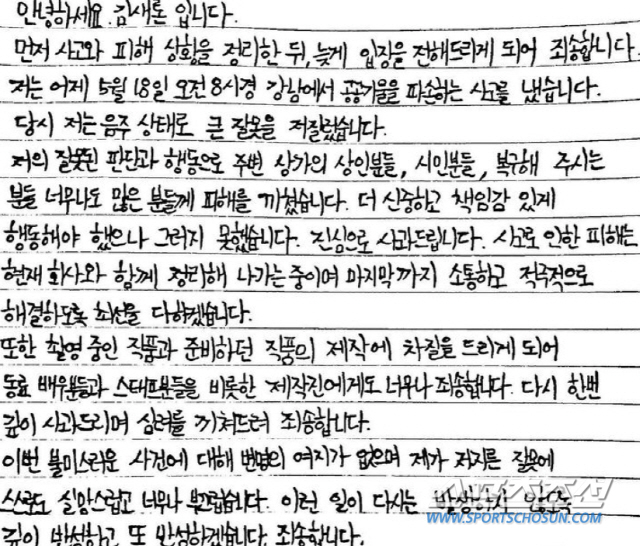 안녕하세요. 김새론 입니다.
먼저 사고와 피해 상황을 정리한 뒤, 늦게 입장을 전해드리게 되어 죄송합니다.
저는 어제 5월 18일 오전 8시경 강남에서 공공기물을 파손하는 사고를 냈습니다.
당시 저는 음주 상태로 큰 잘못을 저질렀습니다.
저의 잘못된 판단과 행동으로 주변 상가의 상인분들, 시민분들, 복구해 주시는
분들 너무나도 많은 분들께 피해를 끼쳤습니다. 더 신중하고 책임감 있게
행동해야 했으나 그러지 못했습니다. 진심으로 사과드립니다. 사고로 인한 피해는
현재 회사와 함께 정리해 나가는 중이며 마지막까지 소통하고 적극적으로
해결하도록 최선을 다하겠습니다.
또한 촬영 중인 작품과 준비하던 작품의 제작에 차질을 드리게 되어
동료 배우분들과 스태프분들을 비롯한 제작진에게도 너무나 죄송합니다. 다시 한번
깊이 사과드리며 심려를 끼쳐드려 죄송합니다.
이번 불미스러운 사건에 대해 변명의 여지가 없으며 제가 저지른 잘못에
스스로도 실망스럽고 너무나 부끄럽습니다. 이런 일이 다시는 발생하지 않도록
깊이 반성하고 또 반성하겠습니다. 죄송합니다.
WWW.SPORTSCHOSUN.COM